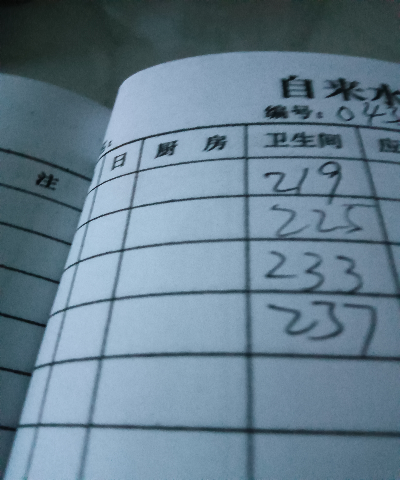 自来水
编号:043
注 日 厨房 卫生间 应
219
225
233
237